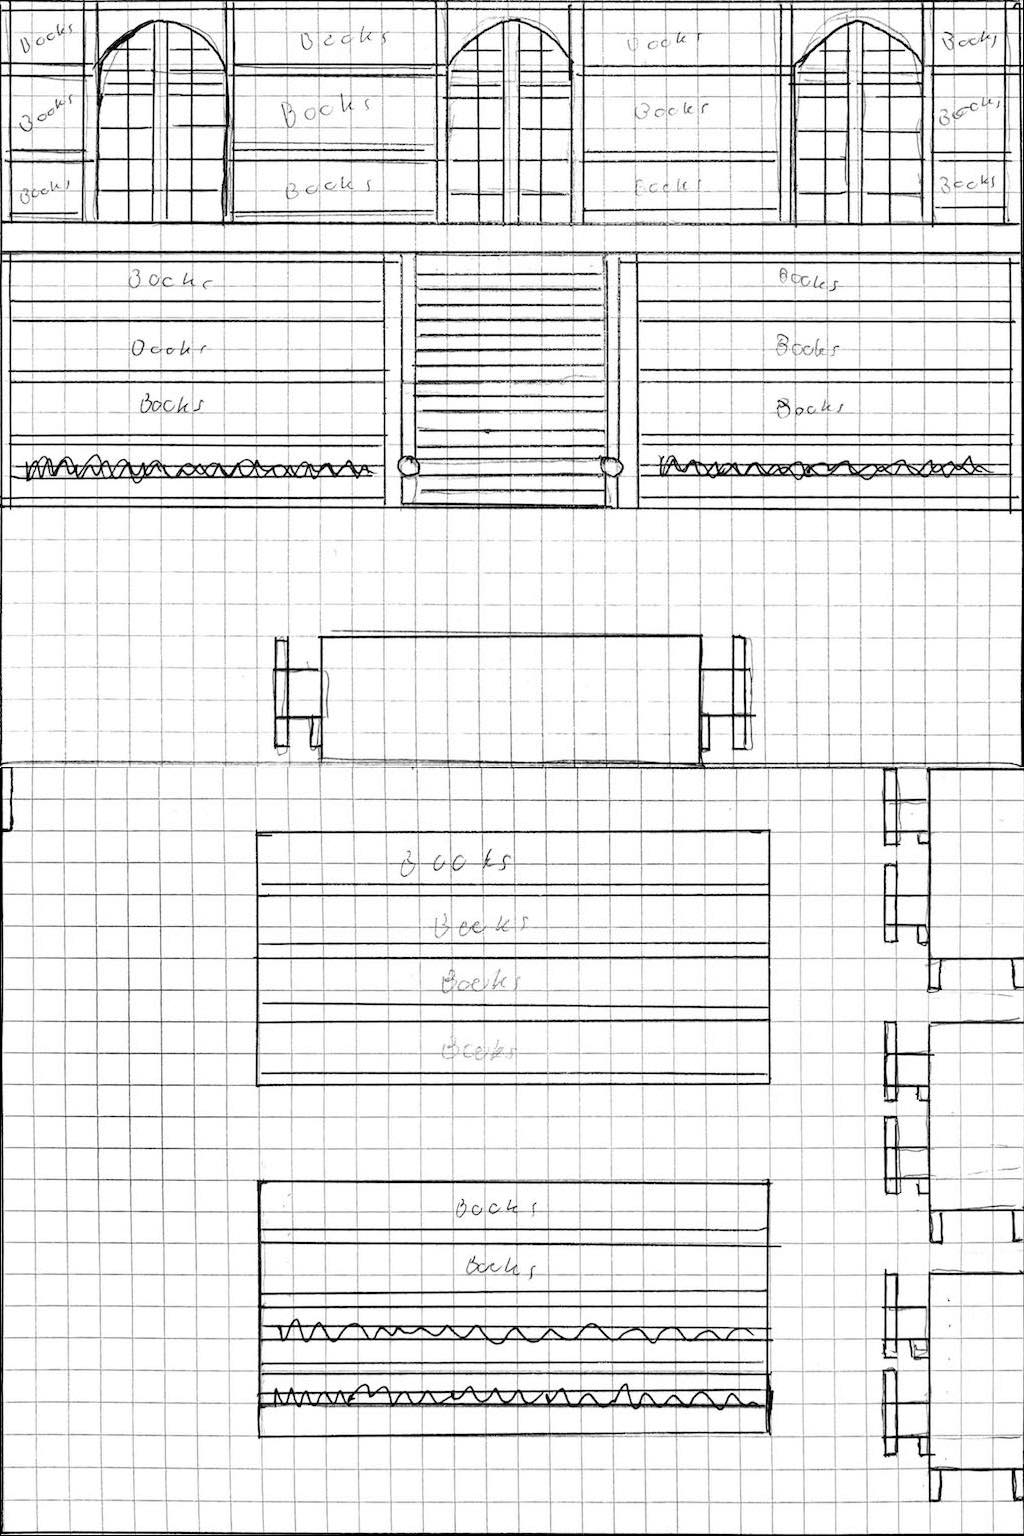 Books Books Books Books
Books Books Books Books
Books Books Books Books
Books Books
Books Books
Books Books
Books
Books
Books
Books
Books
Books